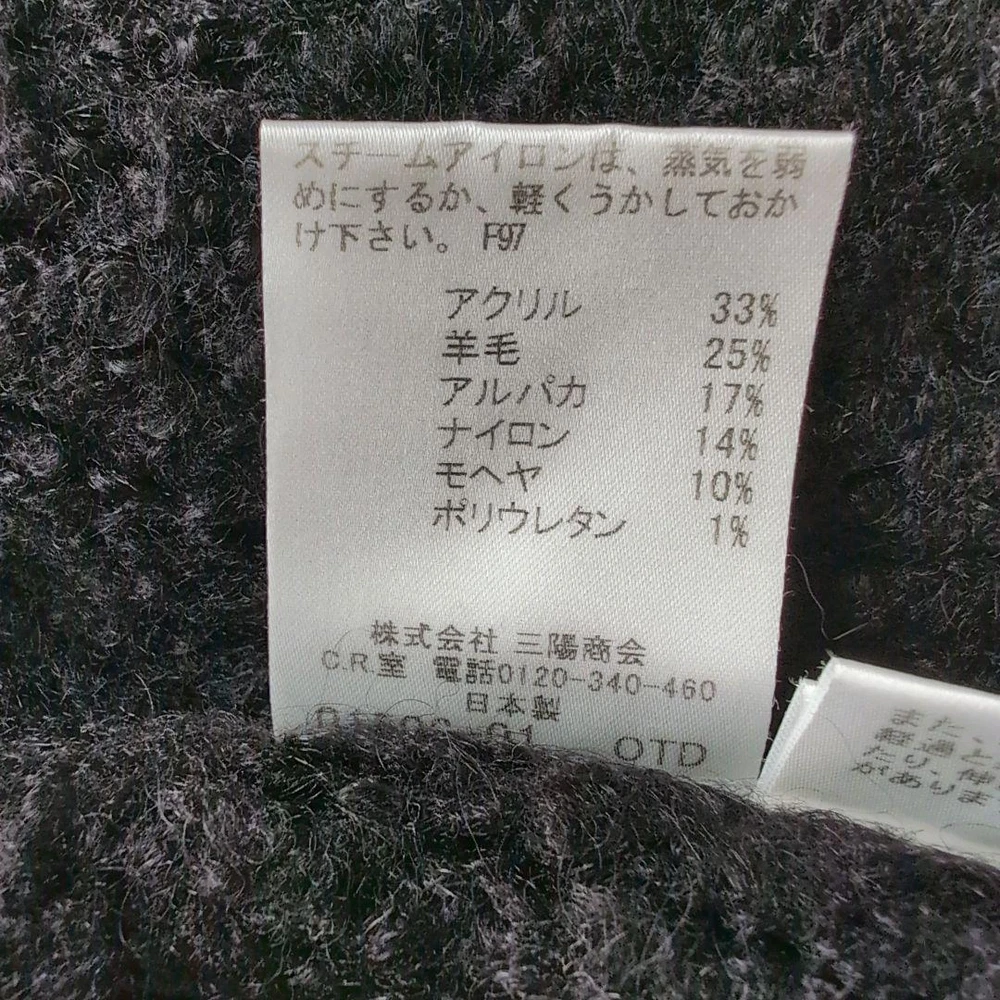 スチームアイロンは、蒸気を弱
めにするか、軽くうかしておか
け下さい。 F97
アクリル 33%
羊毛 25%
アルパカ 17%
ナイロン 14%
モヘヤ 10%
ポリウレタン 1%
株式会社 三陽商会
C.R.室 電話0120-340-460
日本製
OTD
また、
経過と
たり、伸
がありま